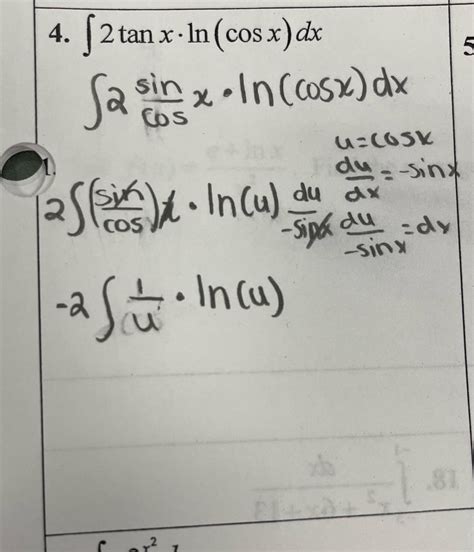 4. ∫ 2 tan x · ln (cos x) dx
∫ 2 sin/cos x · ln(cosx) dx
u = cosx
1.
du/dx = -sinx
2∫(sin/cos)x · ln(u) du/-sinx
du/-sinx = dx
-2 ∫ 1/u · ln(u)
5
18.